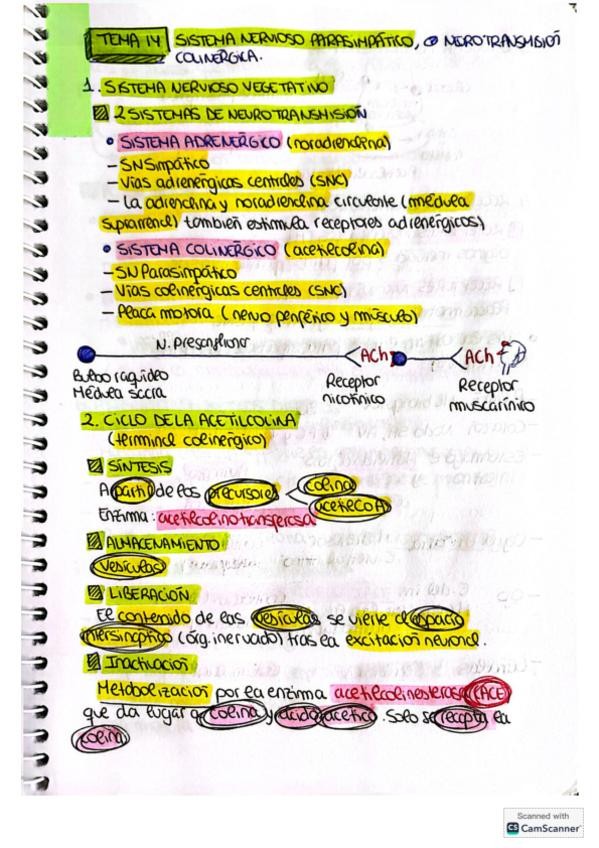 TEMA 14 SISTEMA NERVIOSO PARASIMPÁTICO, NEUROTRANSMISIÓN
COLINÉRGICA.
1. SISTEMA NERVIOSO VEGETATIVO
2 SISTEMAS DE NEUROTRANSMISIÓN
• SISTEMA ADRENÉRGICO (noradrenalina)
- SNSimpático
- Vías adrenérgicas centrales (SNC)
- La adrenalina y noradrenalina circulante (médula
suprarrenal) también estimula receptores adrenérgicos)
• SISTEMA COLINÉRGICO (acetilcolina)
- SNParasimpático
- Vías colinérgicas centrales (SNC)
- Placa motora (nervio periférico y músculo)
N. Preganglionar
ACh ACh
Bulbo raquídeo Receptor Receptor
Médula sacra nicotínico muscarínico
2. CICLO DE LA ACETILCOLINA
(terminal colinérgico)
SÍNTESIS
A partir de los precursores colina
acetilcoA
Enzima: acetilcolinotransferasa
ALMACENAMIENTO
Vesículas
LIBERACIÓN
El contenido de las vesículas se vierte al espacio
intersináptico (órg. inervado) tras la excitación neuronal.
Inactivación
Metabolización por la enzima acetilcolinesterasa (ACE)
que da lugar a colina y ácido acético. Solo se recapta la
colina
Scanned with
CS CamScanner